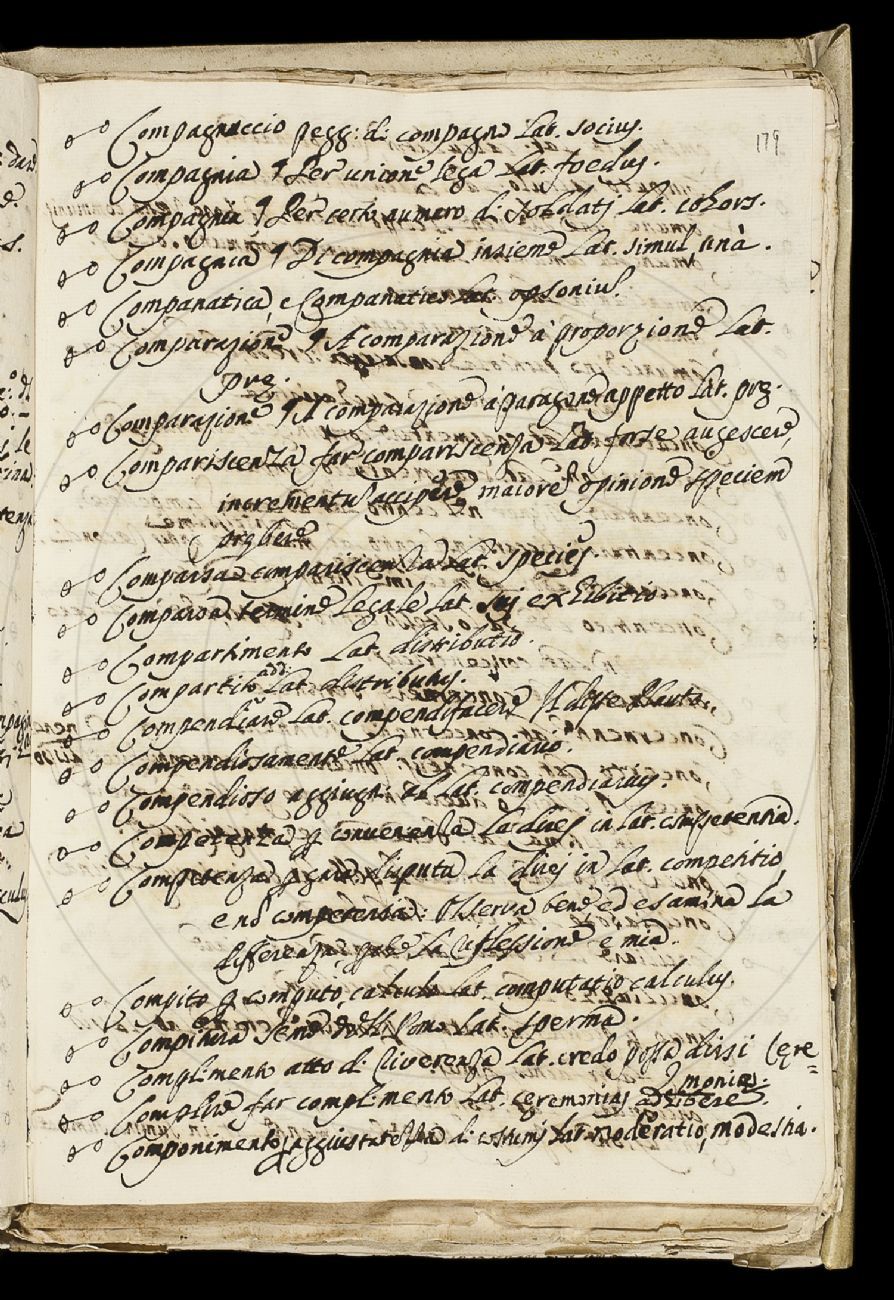 179
Compagnuccio pegg: di compagno Lat. socius.
Compagnia ¶ Per unione lega Lat. foedus.
Compagnia ¶ Per certo numero di soldati Lat. cohors.
Compagnia ¶ Di compagnia insieme Lat. simul, unà.
Companatica, e Companatico Lat. opsoniu.
Comparazione ¶ A comparazione à proporzione Lat.
prę.
Comparazione ¶ A comparazione à paragone appetto Lat. prę.
Compariscenza far compariscenza Lat. forse augescere,
incrementu accipere maiore opinione speciem
Comparsa compariscenza Lat. species.
Comparsa termine legale Lat. sui exhibitio
Compartimento Lat. distributio.
Compartito add: Lat. distributus.
Compendiare Lat. compendifacere Plauto.
Compendiosamente Lat. compendiario.
Compendioso aggiugn: al Lat. compendiarius.
Competenza p convenenza La dices in Lat. competentia.
Competenza p gara, disputa la dices in Lat. competitio
e nò competentia: Osserva bene ed esamina la
differenza, che la riflessione e mia.
Compito p computo, calculo Lat. computatio calculus.
seme Lat. sperma.
Complimento atto di riverenza Lat. credo possa dirsi Cere=
moniae.
Complire far complimento Lat. ceremonias adhibere.
Componimento aggiustatezza di costumi Lat. moderatio, modestia.